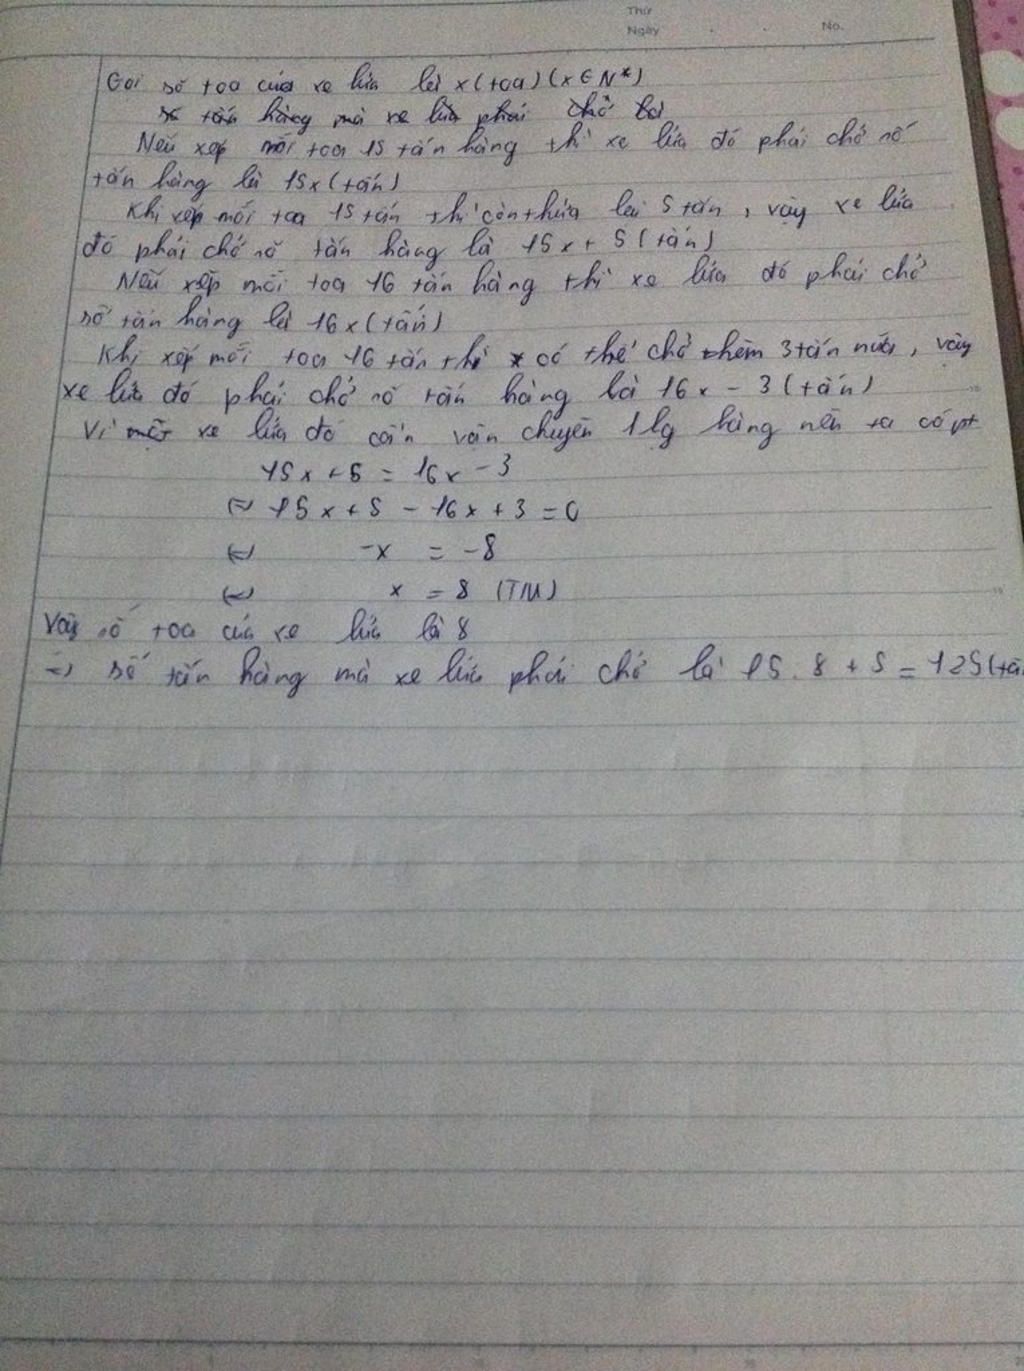 Thứ
Ngày No.
Gọi số toa của xe lửa là x (toa) (x ∈ N*)
x tấn hàng mà xe lửa phải chở là
Nếu xếp mỗi toa 15 tấn hàng thì xe lửa đó phải chở số
tấn hàng là 15x (tấn)
Khi xếp mỗi toa 15 tấn thì còn thừa lại 5 tấn, vậy xe lửa
đó phải chở số tấn hàng là 15x + 5 (tấn)
Nếu xếp mỗi toa 16 tấn hàng thì xe lửa đó phải chở
số tấn hàng là 16x (tấn)
Khi xếp mỗi toa 16 tấn thì có thể chở thêm 3 tấn nữa, vậy
xe lửa đó phải chở số tấn hàng là 16x - 3 (tấn)
Vì xe lửa đó cần vận chuyển 1 lg hàng nên ta có pt
15x + 5 = 16x - 3
⇔ 15x + 5 - 16x + 3 = 0
⇔ -x = -8
⇔ x = 8 (TM)
Vậy số toa của xe lửa là 8
=> số tấn hàng mà xe lửa phải chở là 15. 8 + 5 = 125 (tấ